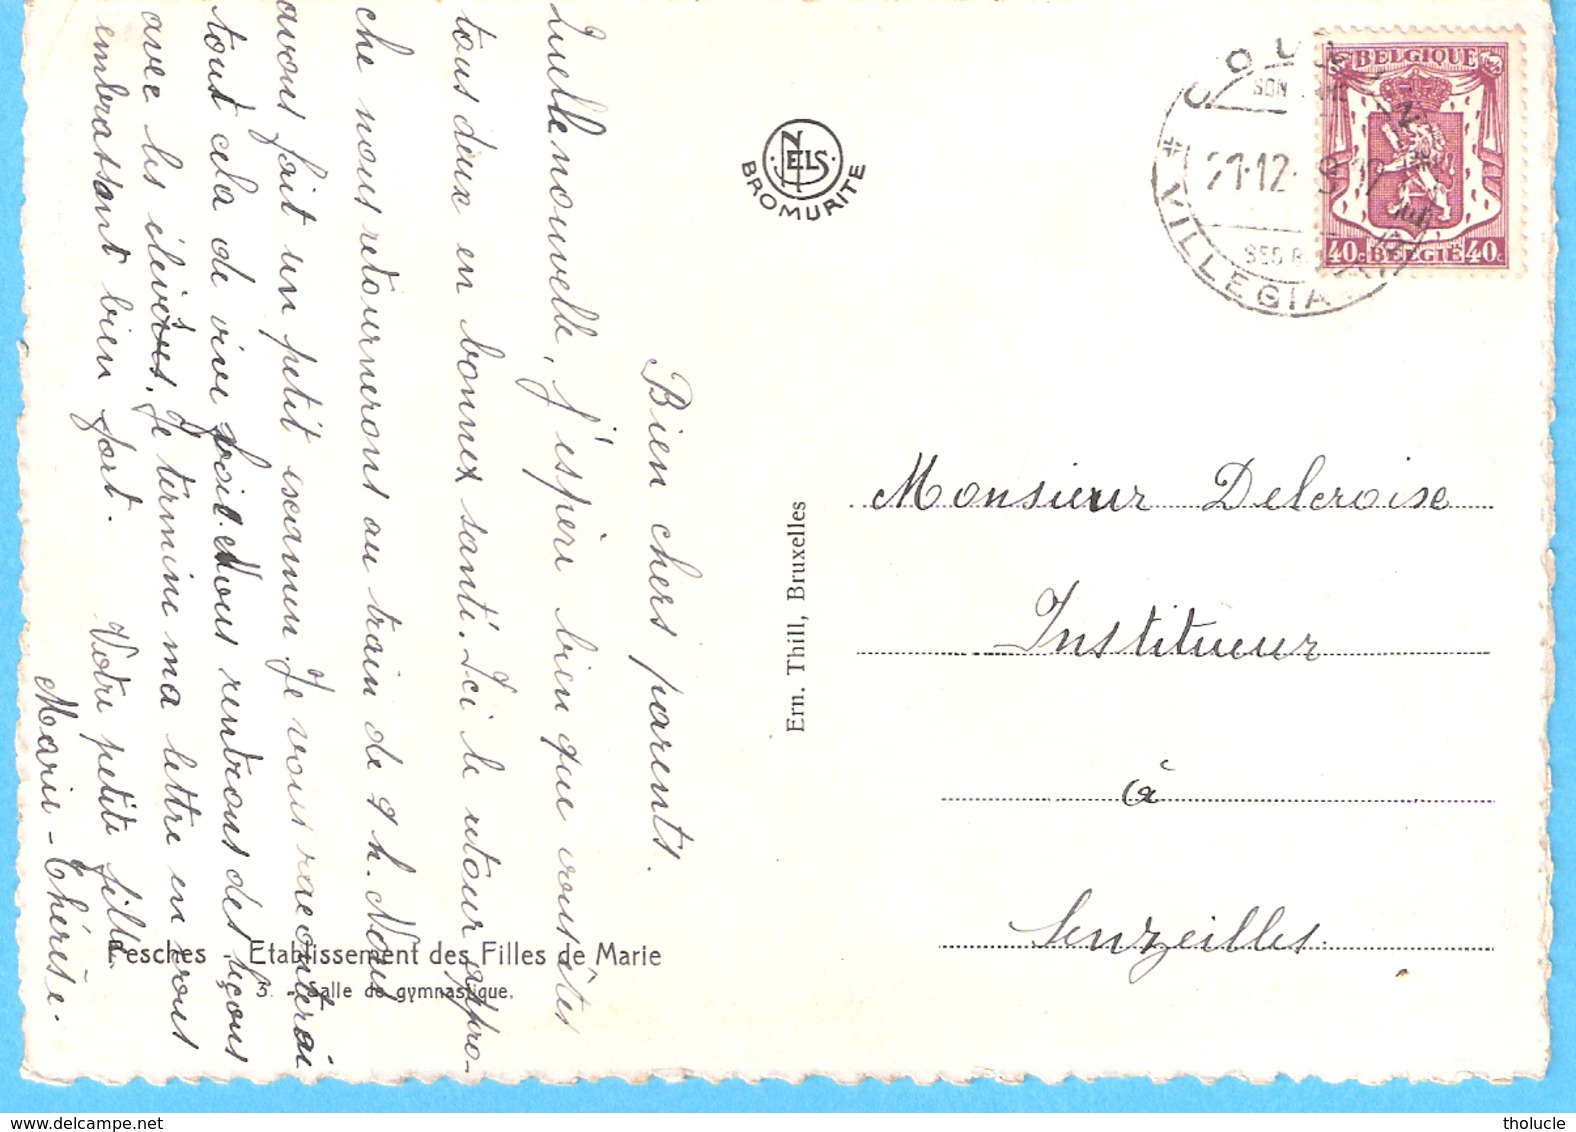 Bien chers parents.
Quelle nouvelle, j'espère bien que vous êtes
tous deux en bonnes santé. Ici le retour appro-
che nous retournerons au train de 2 h. Nous
avons fait un petit examen. Je vous raconterai
tout cela de vive voix. Nous rentrons des leçons
avec les élèves. Je termine ma lettre en vous
embrassant bien fort. Votre petite fille
Marie-Thérèse.
Pesches - Etablissement des Filles de Marie
3. - Salle de gymnastique.
NELS
BROMURITE
Ern. Thill, Bruxelles
BELGIQUE
40c BELGIË 40c
COUV
SON
21.12.
SES
VILLEGIA
Monsieur Delcroise
Instituteur
à
Senzeilles.
tholucle